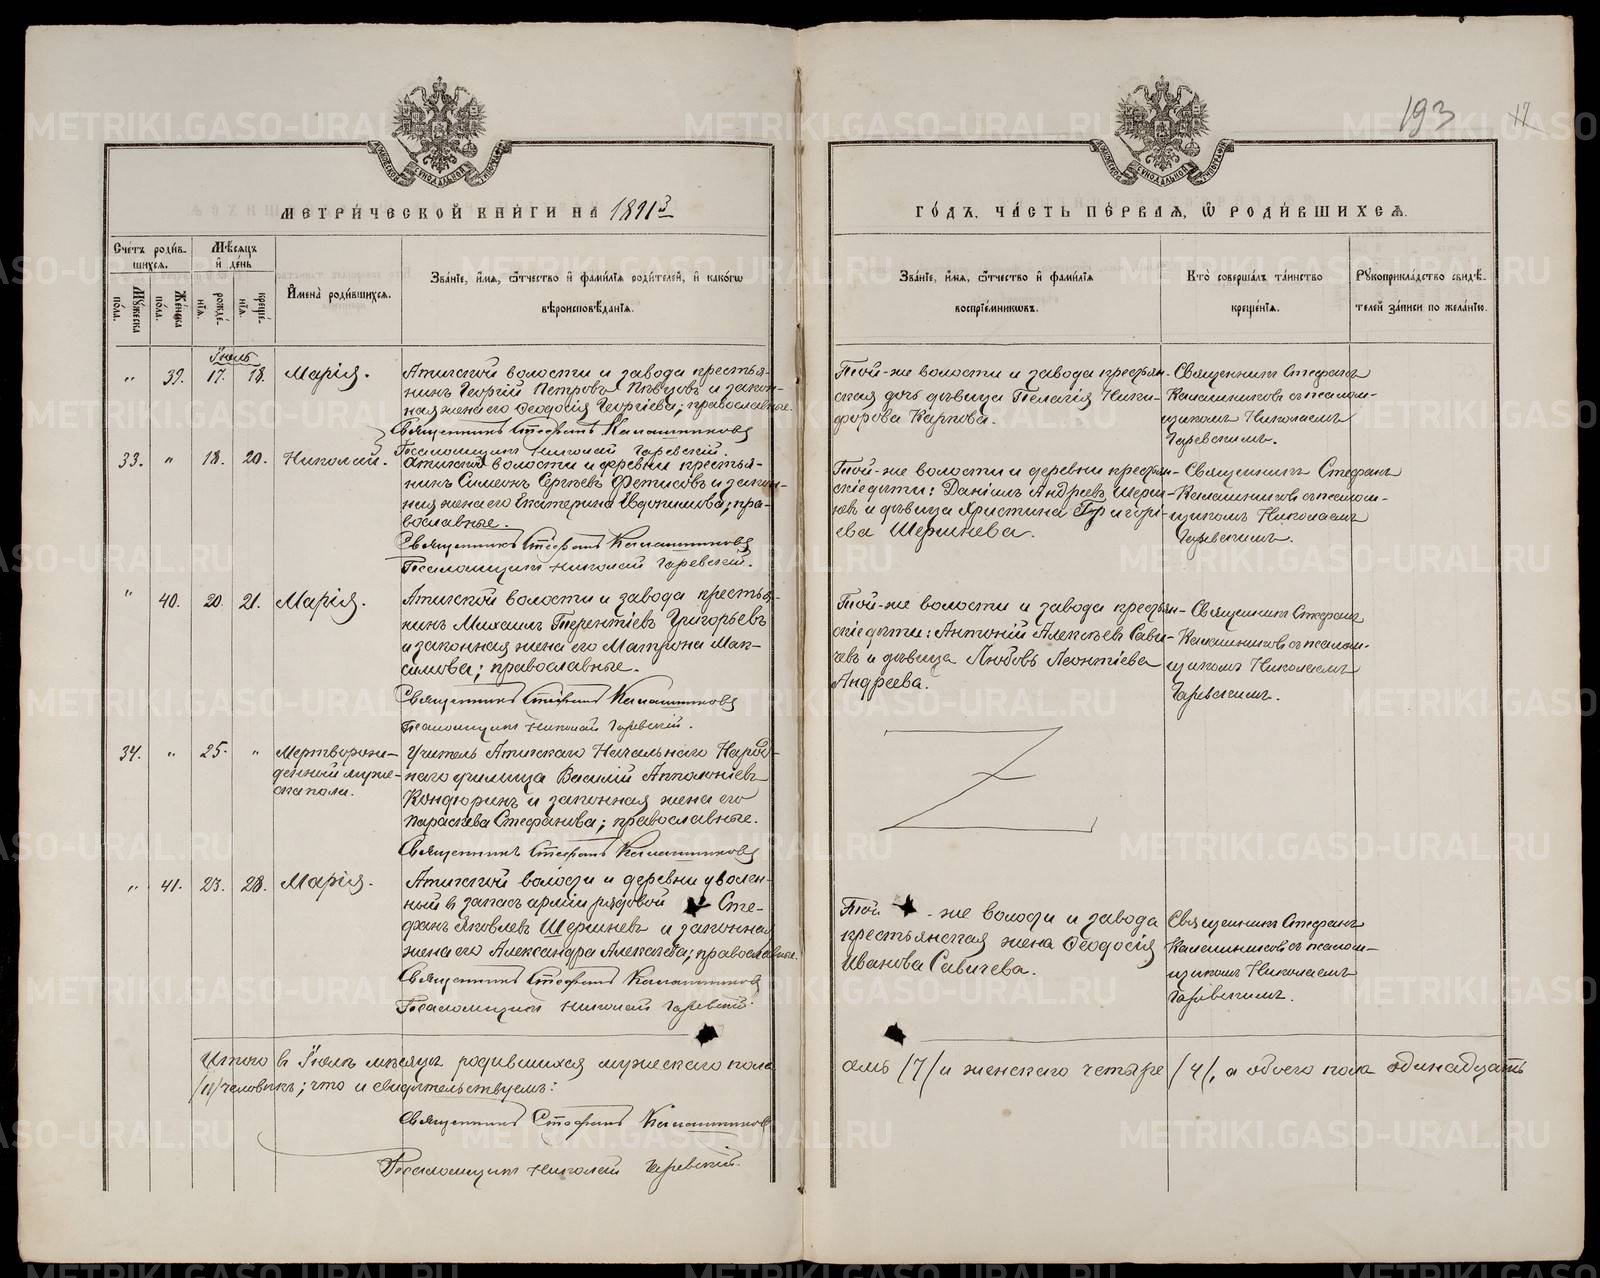 193
17
МЕТРИ́ЧЕСКОЙ КНИ́ГИ НА 1891 3
ГО́ДЪ, ЧА́СТЬ ПЕ́РВАЯ, Ѽ РОДИ́ВШИХСЯ.
Сче́тъ роди́в-
шихся.
Мѣ́сяцъ
и де́нь
Му́жеска
по́ла.
Же́нска
по́ла.
рожде́-
нїя.
креще́-
нїя.
И҆мена̀ роди́вшихся.
Зва́нїе, и҆́мя, ѻ҆́тчество и҆ фами́лїя роди́телей, и҆ како́гѡ
вѣроисповѣ́данїя.
Зва́нїе, и҆́мя, ѻ҆́тчество и҆ фами́лїя
воспрїе́мникѡвъ.
Кто̀ соверша́лъ та́инство
креще́нїя.
Рꙋкоприкла́дство свидѣ́-
телей за́писи по жела́нїю.
Іюль
" 39. 17. 18. Марія.
Атигской волости и завода крестья-
нинъ Георгій Петровъ Пѣвцовъ и закон-
ная жена его Ѳеодосія Георгіева; православные.
Священникъ Стефанъ Калашниковъ
Псаломщикъ Николай Гаревскій.
Той-же волости и завода крестьян-
ская дочь дѣвица Пелагія Ники-
форова Карпова.
Священникъ Стефанъ
Калашниковъ съ псалом-
щикомъ Николаемъ
Гаревскимъ.
33. " 18. 20. Николай.
Атигской волости и деревни крестья-
нинъ Симеонъ Сергѣевъ Фетисовъ и закон-
ная жена его Екатерина Евдокимова; пра-
вославные.
Священникъ Стефанъ Калашниковъ
Псаломщикъ Николай Гаревскій.
Той-же волости и деревни крестьян-
скіе дѣти: Даніилъ Андреевъ Шерш-
невъ и дѣвица Христина Григорь-
ева Шершнева.
Священникъ Стефанъ
Калашниковъ съ псалом-
щикомъ Николаемъ
Гаревскимъ.
" 40. 20. 21. Марія.
Атигской волости и завода крестья-
нинъ Михаилъ Терентіевъ Григорьевъ
и законная жена его Матрона Мак-
симова; православные.
Священникъ Стефанъ Калашниковъ
Псаломщикъ Николай Гаревскій.
Той-же волости и завода крестьян-
скіе дѣти: Антоній Алексѣевъ Сави-
чевъ и дѣвица Любовь Леонтіева
Андреева.
Священникъ Стефанъ
Калашниковъ съ псалом-
щикомъ Николаемъ
Гаревскимъ.
34. " 25. "
Мертворож-
денный муже-
ска пола.
Учитель Атигскаго Начальнаго Народ-
наго училища Василій Апполоніевъ
Кондюринъ и законная жена его
Параскева Стефанова; православные.
Священникъ Стефанъ Калашниковъ
" 41. 23. 28. Марія.
Атигской волости и деревни уволен-
ный въ запасъ арміи рядовой Сте-
фанъ Яковлевъ Шершневъ и законная
жена его Александра Алексѣева; православные.
Священникъ Стефанъ Калашниковъ
Псаломщикъ Николай Гаревскій.
Той-же волости и завода
крестьянская жена Ѳеодосія
Иванова Савичева.
Священникъ Стефанъ
Калашниковъ съ псалом-
щикомъ Николаемъ
Гаревскимъ.
Итого въ Іюлѣ мѣсяцѣ родившихся мужескаго пола
семь /7/ и женскаго четыре /4/, а обоего пола одинадцать
/11/ человѣкъ; что и свидѣтельствуемъ:
Священникъ Стефанъ Калашниковъ
Псаломщикъ Николай Гаревскій.
METRIKI.GASO-URAL.RU